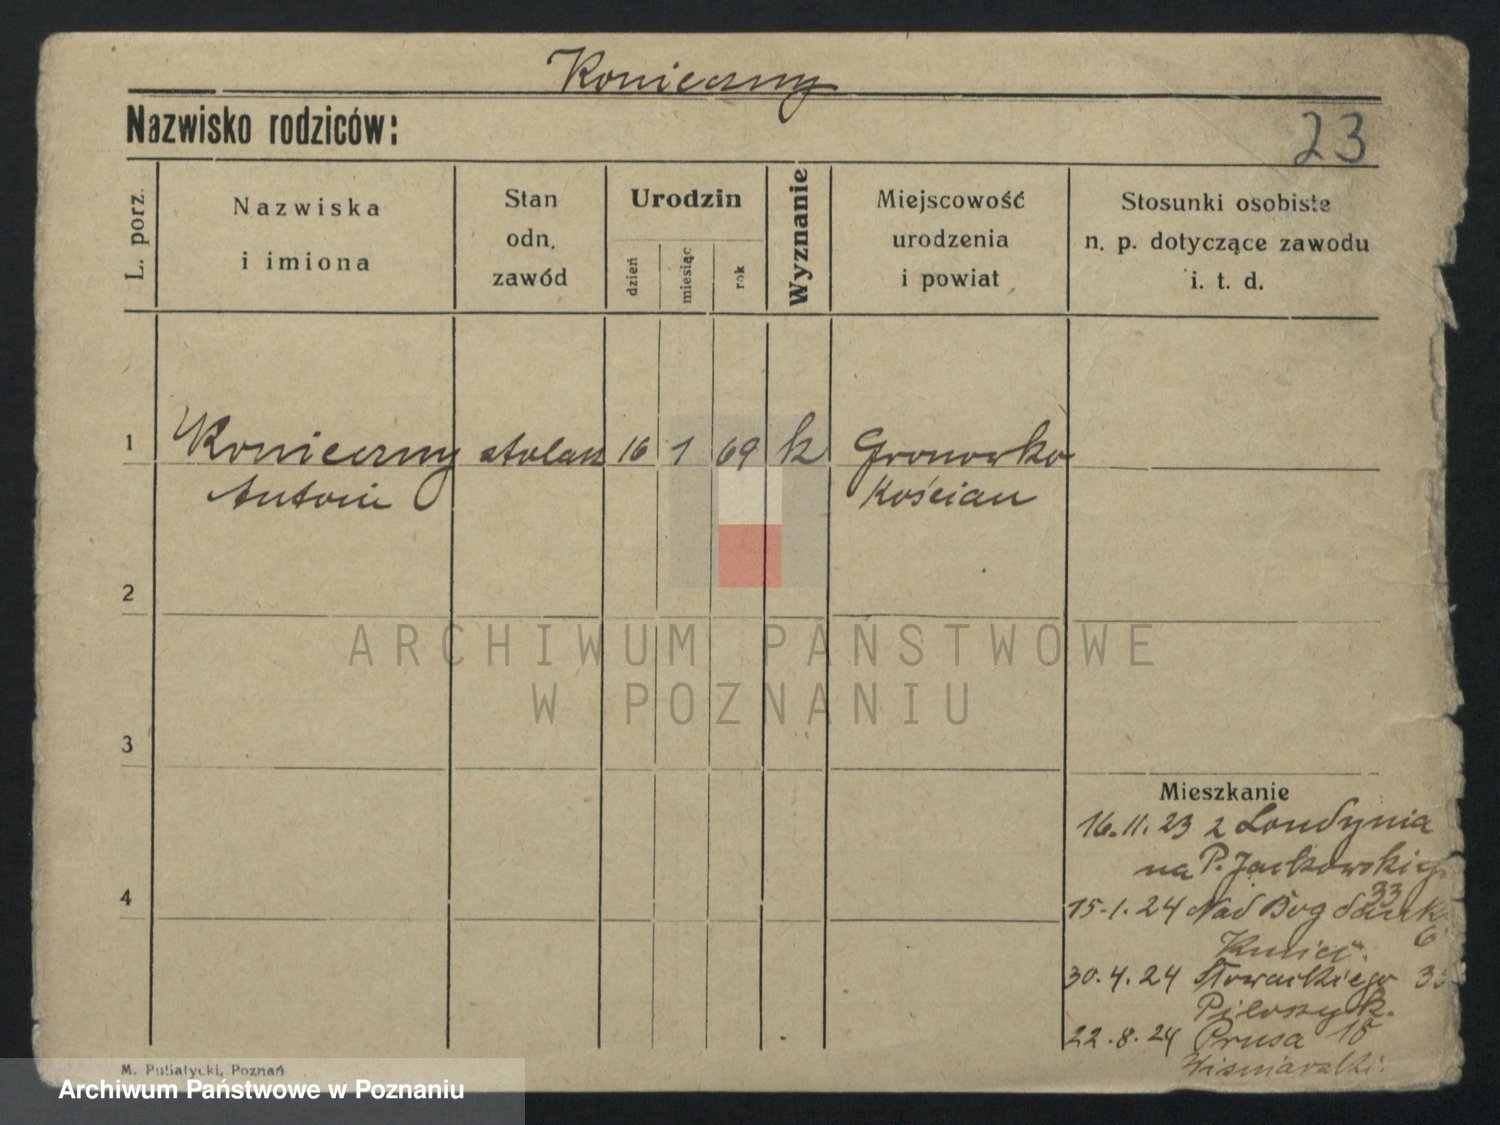 Konieczny
Nazwisko rodziców:
23
L. porz.
Nazwiska
i imiona
Stan
odn.
zawód
Urodzin
dzień
miesiąc
rok
Wyznanie
Miejscowość
urodzenia
i powiat
Stosunki osobiste
n. p. dotyczące zawodu
i. t. d.
1 Konieczny stolarz 16 1 69 k Gronowko
Antoni Kościan
2
ARCHIWUM PAŃSTWOWE
W POZNANIU
3
Mieszkanie
16.11.23 z Londynia
na P. Jackowskieg
33
4
15.1.24 Nad Bogdank
6
30.4.24 Słowackiego 33
22.8.24 Prusa 15
M. Putiatycki, Poznań
Archiwum Państwowe w Poznaniu